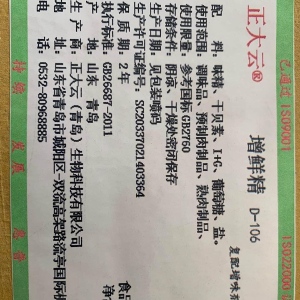 已通过 ISO9001
ISO22000
正大云®
增鲜精 D-106
复配增味
配 料：味精、干贝素、I+G、葡萄糖、盐。
使用范围：调味品、预制肉制品、熟肉制品、
使用限量：参考国标GB2760
存储条件：阴凉、干燥处密闭保存
生产日期：见包装喷码
生产许可证编号：SC20337021403364
保 质 期：2 年
执行标准：GB26687-2011
产 地：山东 青岛
正大云（青岛）生物科技有限公司
山东省青岛市城阳区-双流高架路流亭国际
0532-80968885
食品
净
持 续 发 展